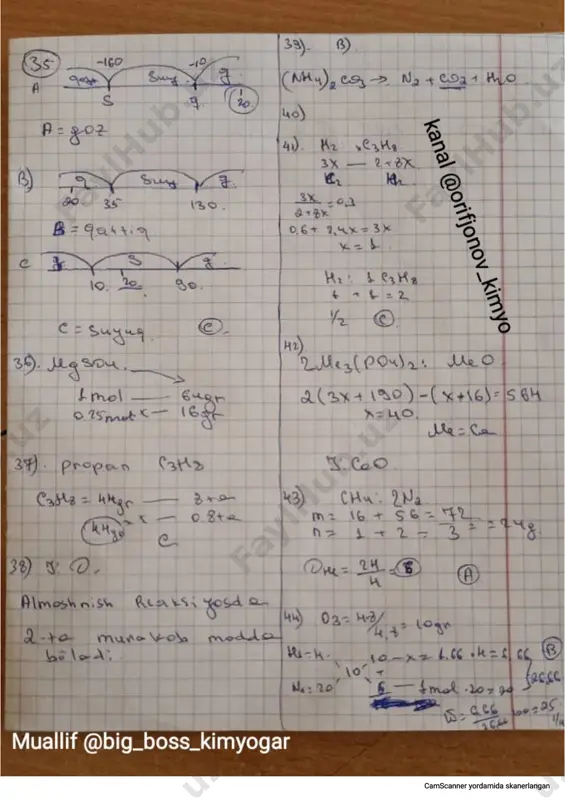 35
-160 -10
gaz suyuq g
A
S q 20
A = gaz
B) q suyuq g
20 35 130
B = qattiq
C q S g
10 20 90
C = suyuq. C
36). MgSO4
1 mol — 64gr
0.25mol x — 16gr
37). propan C3H8
C3H8 = 44gr — 8ta
4.4gr x — 0.8ta
C
38) J. D.
Almashnish Reaksiyosda
2-ta murakkab modda
bo'ladi.
39). B)
(NH4)2CO3 → N2 + CO2 + H2O
40)
41) H2 C3H8
3x — 2+8x
3x / 2+8x = 0,3
0,6 + 2,4x = 3x
x = 1
H2 : 1 C3H8
1 + 1 = 2
1/2 C
42)
2Me3(PO4)2 : MeO
2(3x + 190) - (x + 16) = 564
x = 40.
Me = Ca
J: CaO
43) CH4 : 2N2
m = 16 + 56 = 72
n = 1 + 2 = 3 = 24g.
DHe = 24/4 = 6
A
44) O3 = 48/4,8 = 10gr
He = 4 10 - x = 1.66 · 4 = 6,66 B
10 + 26,66
Ne = 20 6 — 1mol · 20 = 20
W = 6,66/26,66 · 100 = 25%
kanal @orifjonov_kimyo
FaylHub.uz
Muallif @big_boss_kimyogar
CamScanner yordamida skanerlangan